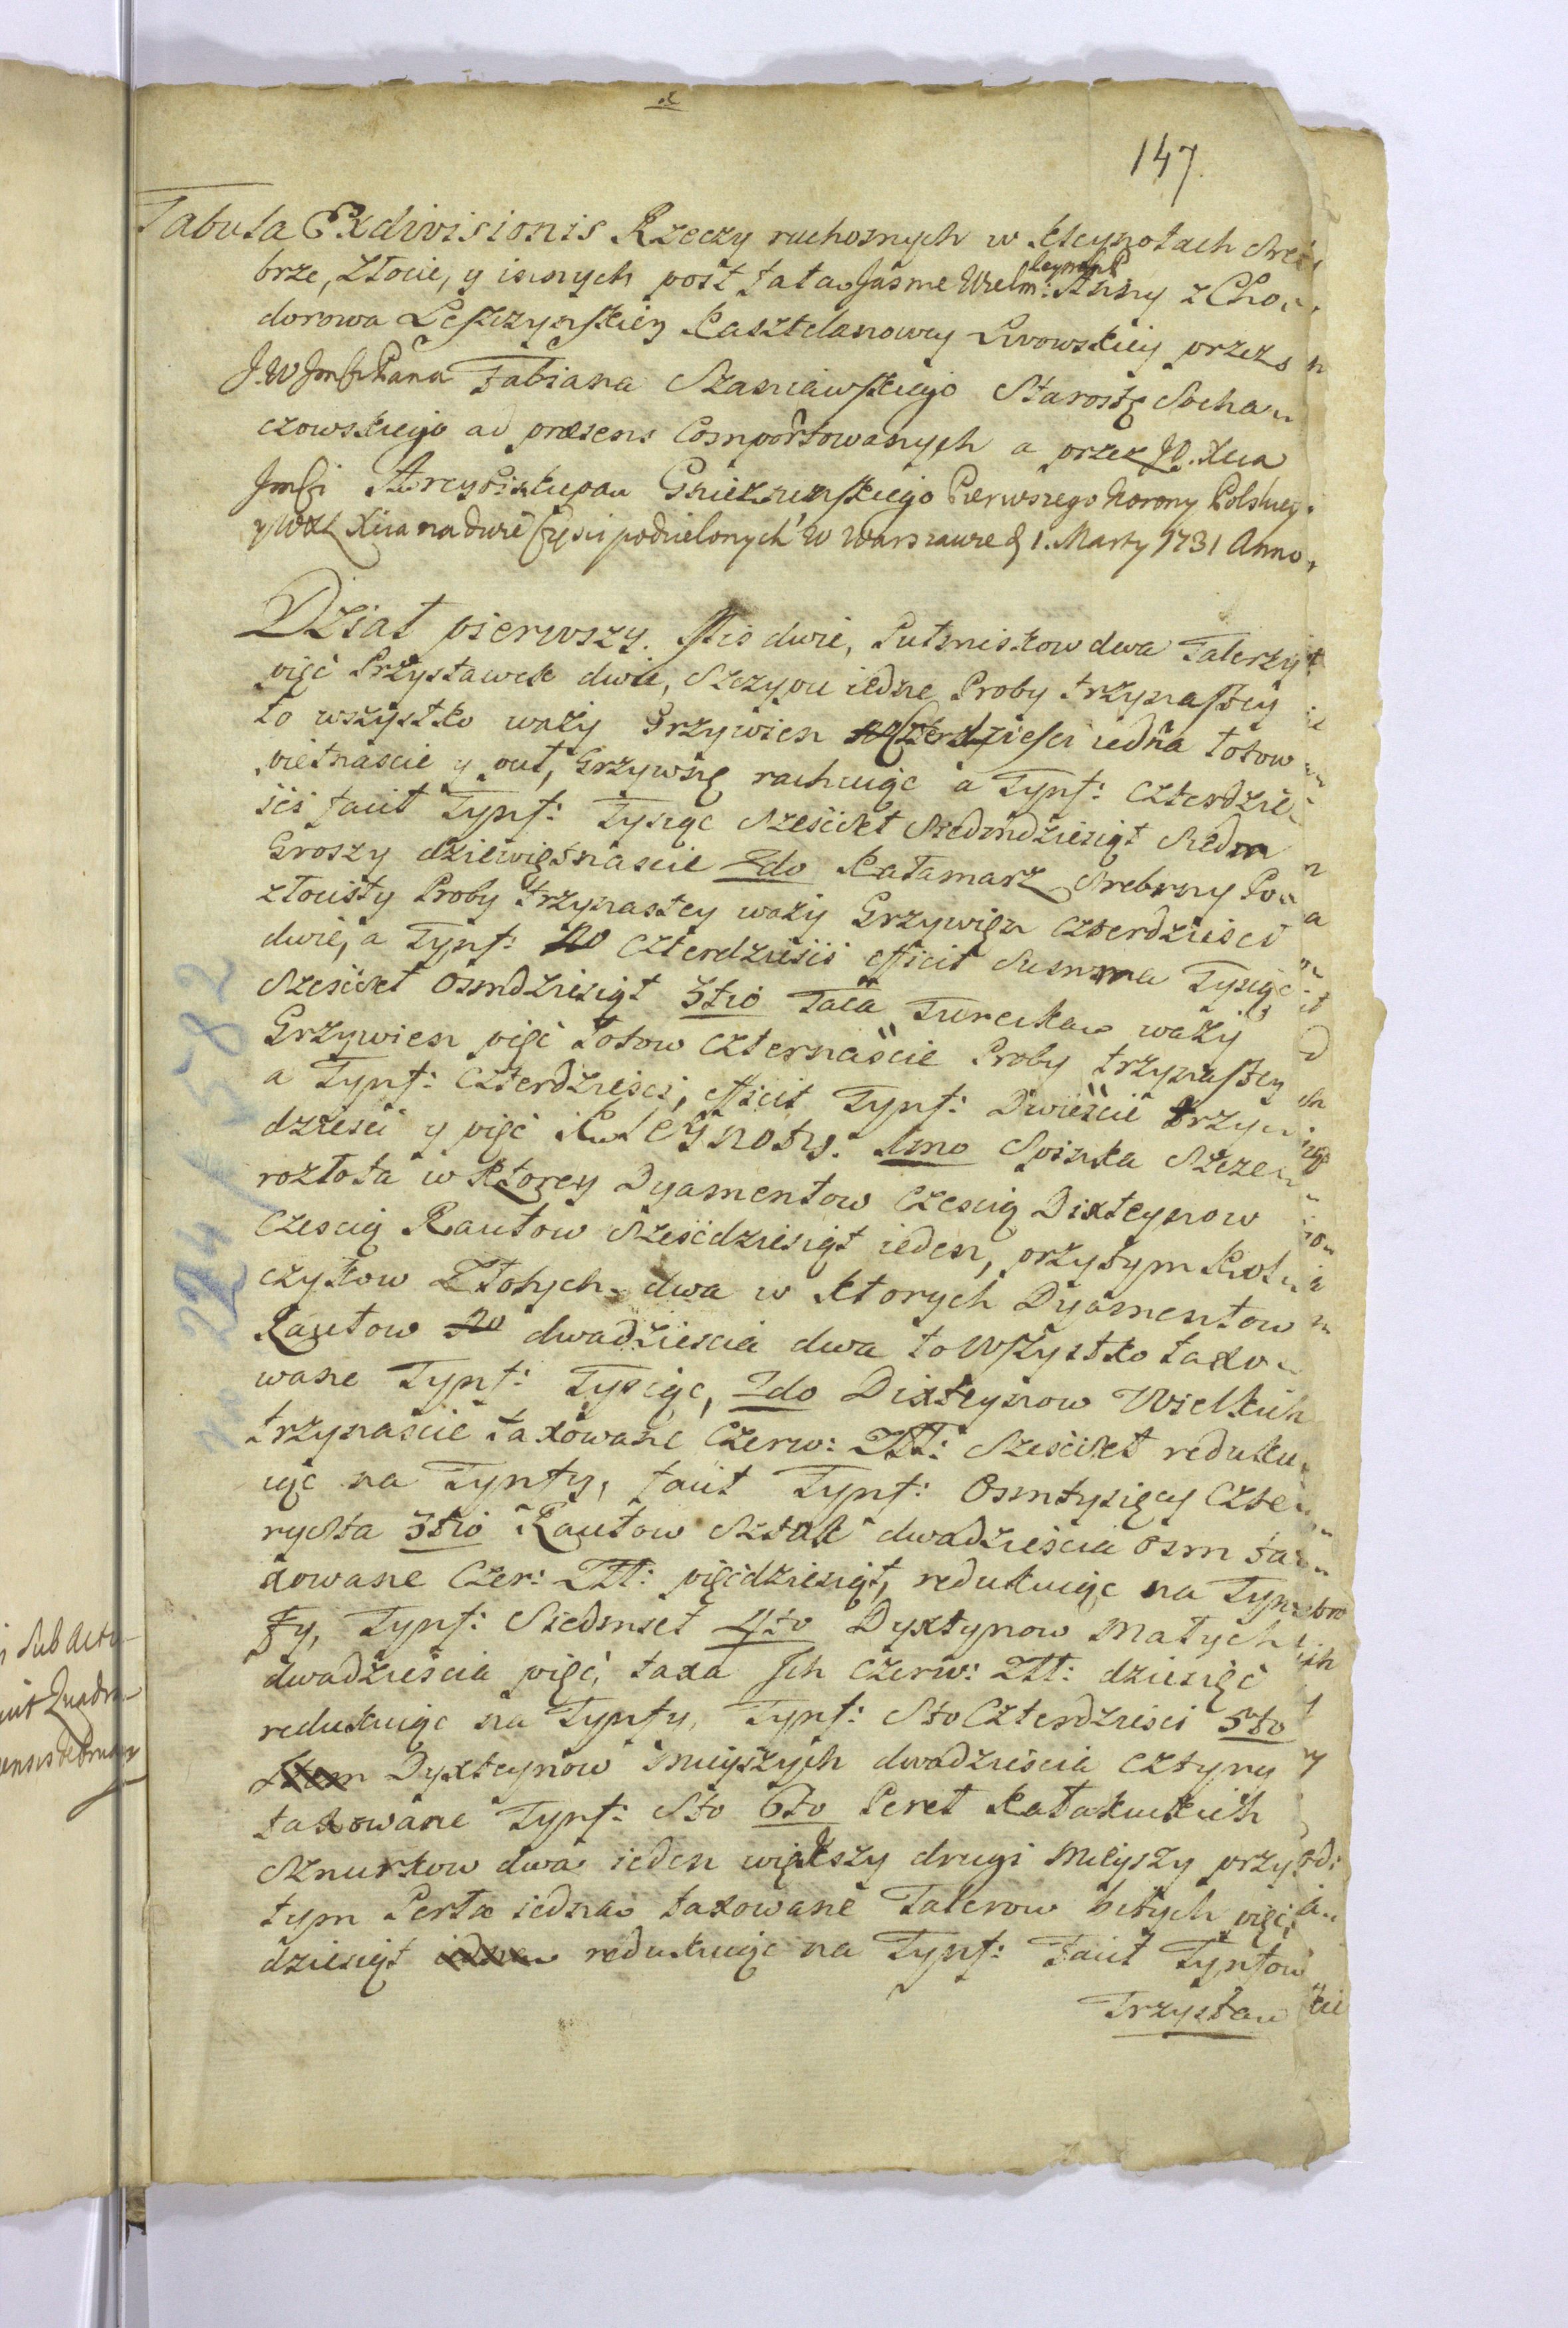 147.
Tabula Exdivisionis Rzeczy ruchomych w kleynotach Sre
brze, Złocie, y innych post fata Jasnie Wielm: Jeymsci Anny z Cho
dorowa Leszczynskiey Kasztelanowey Lwowskiey przez
J.W Jmści Pana Fabiana Szaniawskiego Starostę Socha
czowskiego ad præsens Comportowanych a przez J.O. Xcia
Jmści Arcybiskupa Gnieznienskiego Pierwszego Korony Polskiey
y WXL Xcia na dwie Częsci podzielonych W Warszawie d 1. Marty 1731 Anno
Dział pierwszy. Mis dwie, Putmiskow dwa Talerzy
pięć Przystawek dwie, Szczypce iedne Proby trzynastey
to wszystko waży Grzywien Czterdziesci iedna łotow
pietnascie y puł, Grzywnę rachuiąc a Tynf: czterdzie
ści facit Tynf: Tysiąc Sześćset Siedmdziesiąt Siedm
Groszy dziewiętnascie 2do Kałamarz Srebrny Po
złocisty Proby trzynastey waży Grzywien czterdziesci
dwie, a Tynf: Czterdzieści efficit Summa Tysiąc
Sześćset Osmdziesiąt 3tio Taca Turecka waży
Grzywien pięć łotow czternaście Proby trzynastey
a Tynf: Czterdziesci, efficit Tynf: Dwieście trzy
dziesci y pięć Kleynoty. 1mo Spinka Szcze
rozłota w ktorey Dyamentow Czescią Dixteynow
Czescią Rautow Sześćdziesiąt ieden, przytym Kol
czykow Złotych dwa w ktorych Dyamentow
Rautow dwadziescia dwa to Wszystko taxo
wane Tynf: Tysiąc, 2do Dixteynow Wielkich
trzynascie taxowane Czerw: Złł: Sześćset reduku
iąc na Tynfy, facit Tynf: Osmtysięcy Czte
rysta 3tio Rautow Sztuk dwadzieścia osm ta
xowane Czer: Złł: pięćdziesiąt, redukuiąc na Tyn
fy, Tynf: Siedmset 4to Dyxtynow Małych
dwadziescia pięć, taxa Jch Czerw: Złł: dziesięć
redukuiąc na Tynfy, Tynf: Sto Czterdziesci 5to
Item Dyxteynow mnieyszych dwadziescia Cztyry
taxowane Tynf: Sto 6to Pereł Kałakuckich
Sznurkow dwa ieden większy drugi Mnieyszy przy
tym Perła iedna taxowane Talerow bitych pięć
dziesiąt redukuiąc na Tynf: Facit Tynfow
Trzysta
224/582